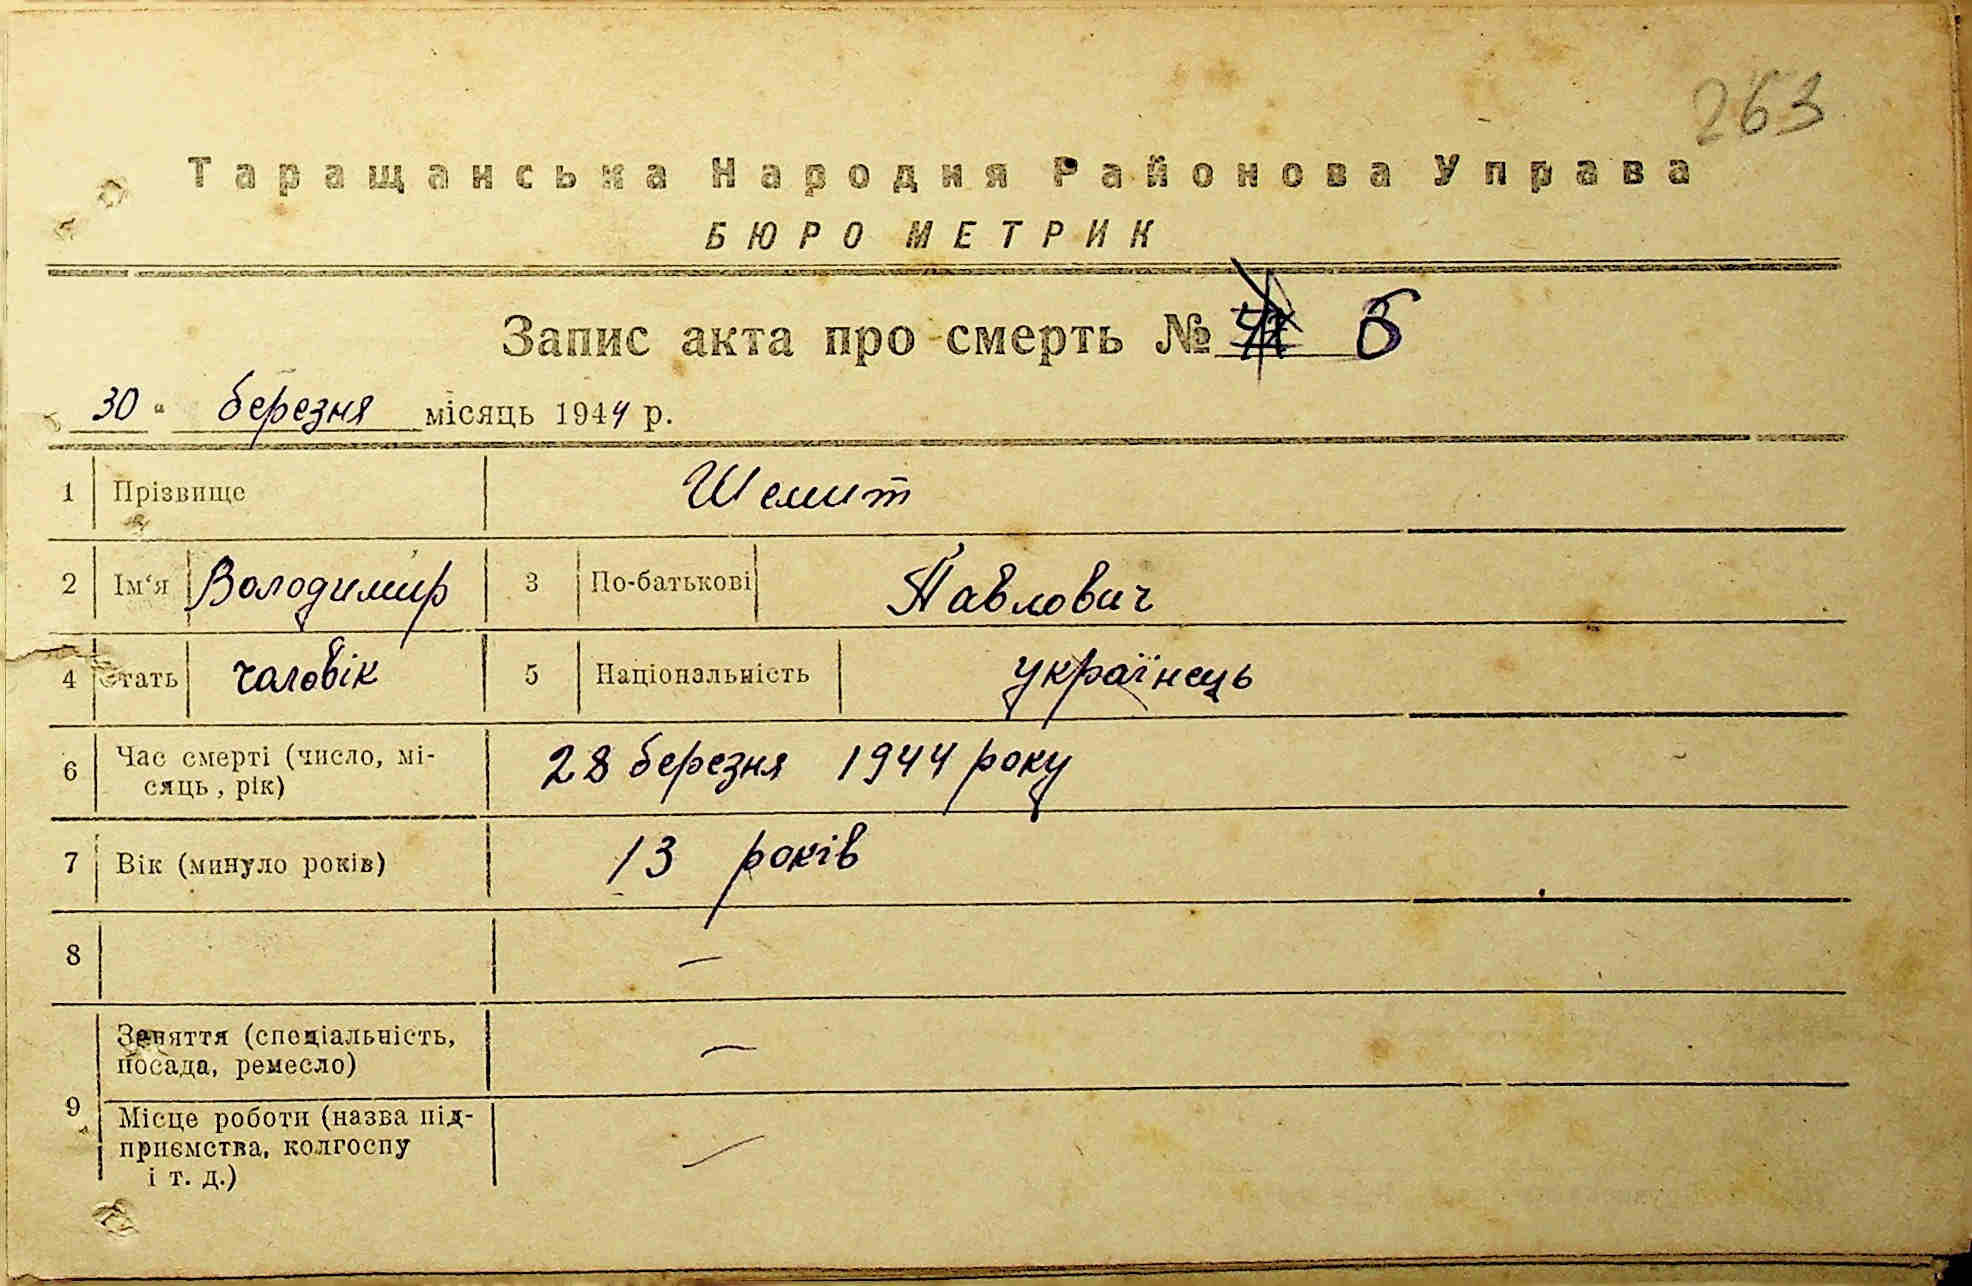 263
Таращанська Народня Районова Управа
БЮРО МЕТРИК
Запис акта про смерть № 6
30 " березня місяць 1944 р.
1 Прізвище Шемит
2 Ім'я Володимир 3 По-батькові Павлович
4 Стать чаловік 5 Національність українець
6 Час смерті (число, мі-
сяць, рік) 28 березня 1944 року
7 Вік (минуло років) 13 років
8 —
9 Заняття (спеціальність,
посада, ремесло) —
Місце роботи (назва під-
приємства, колгоспу
і т. д.) —